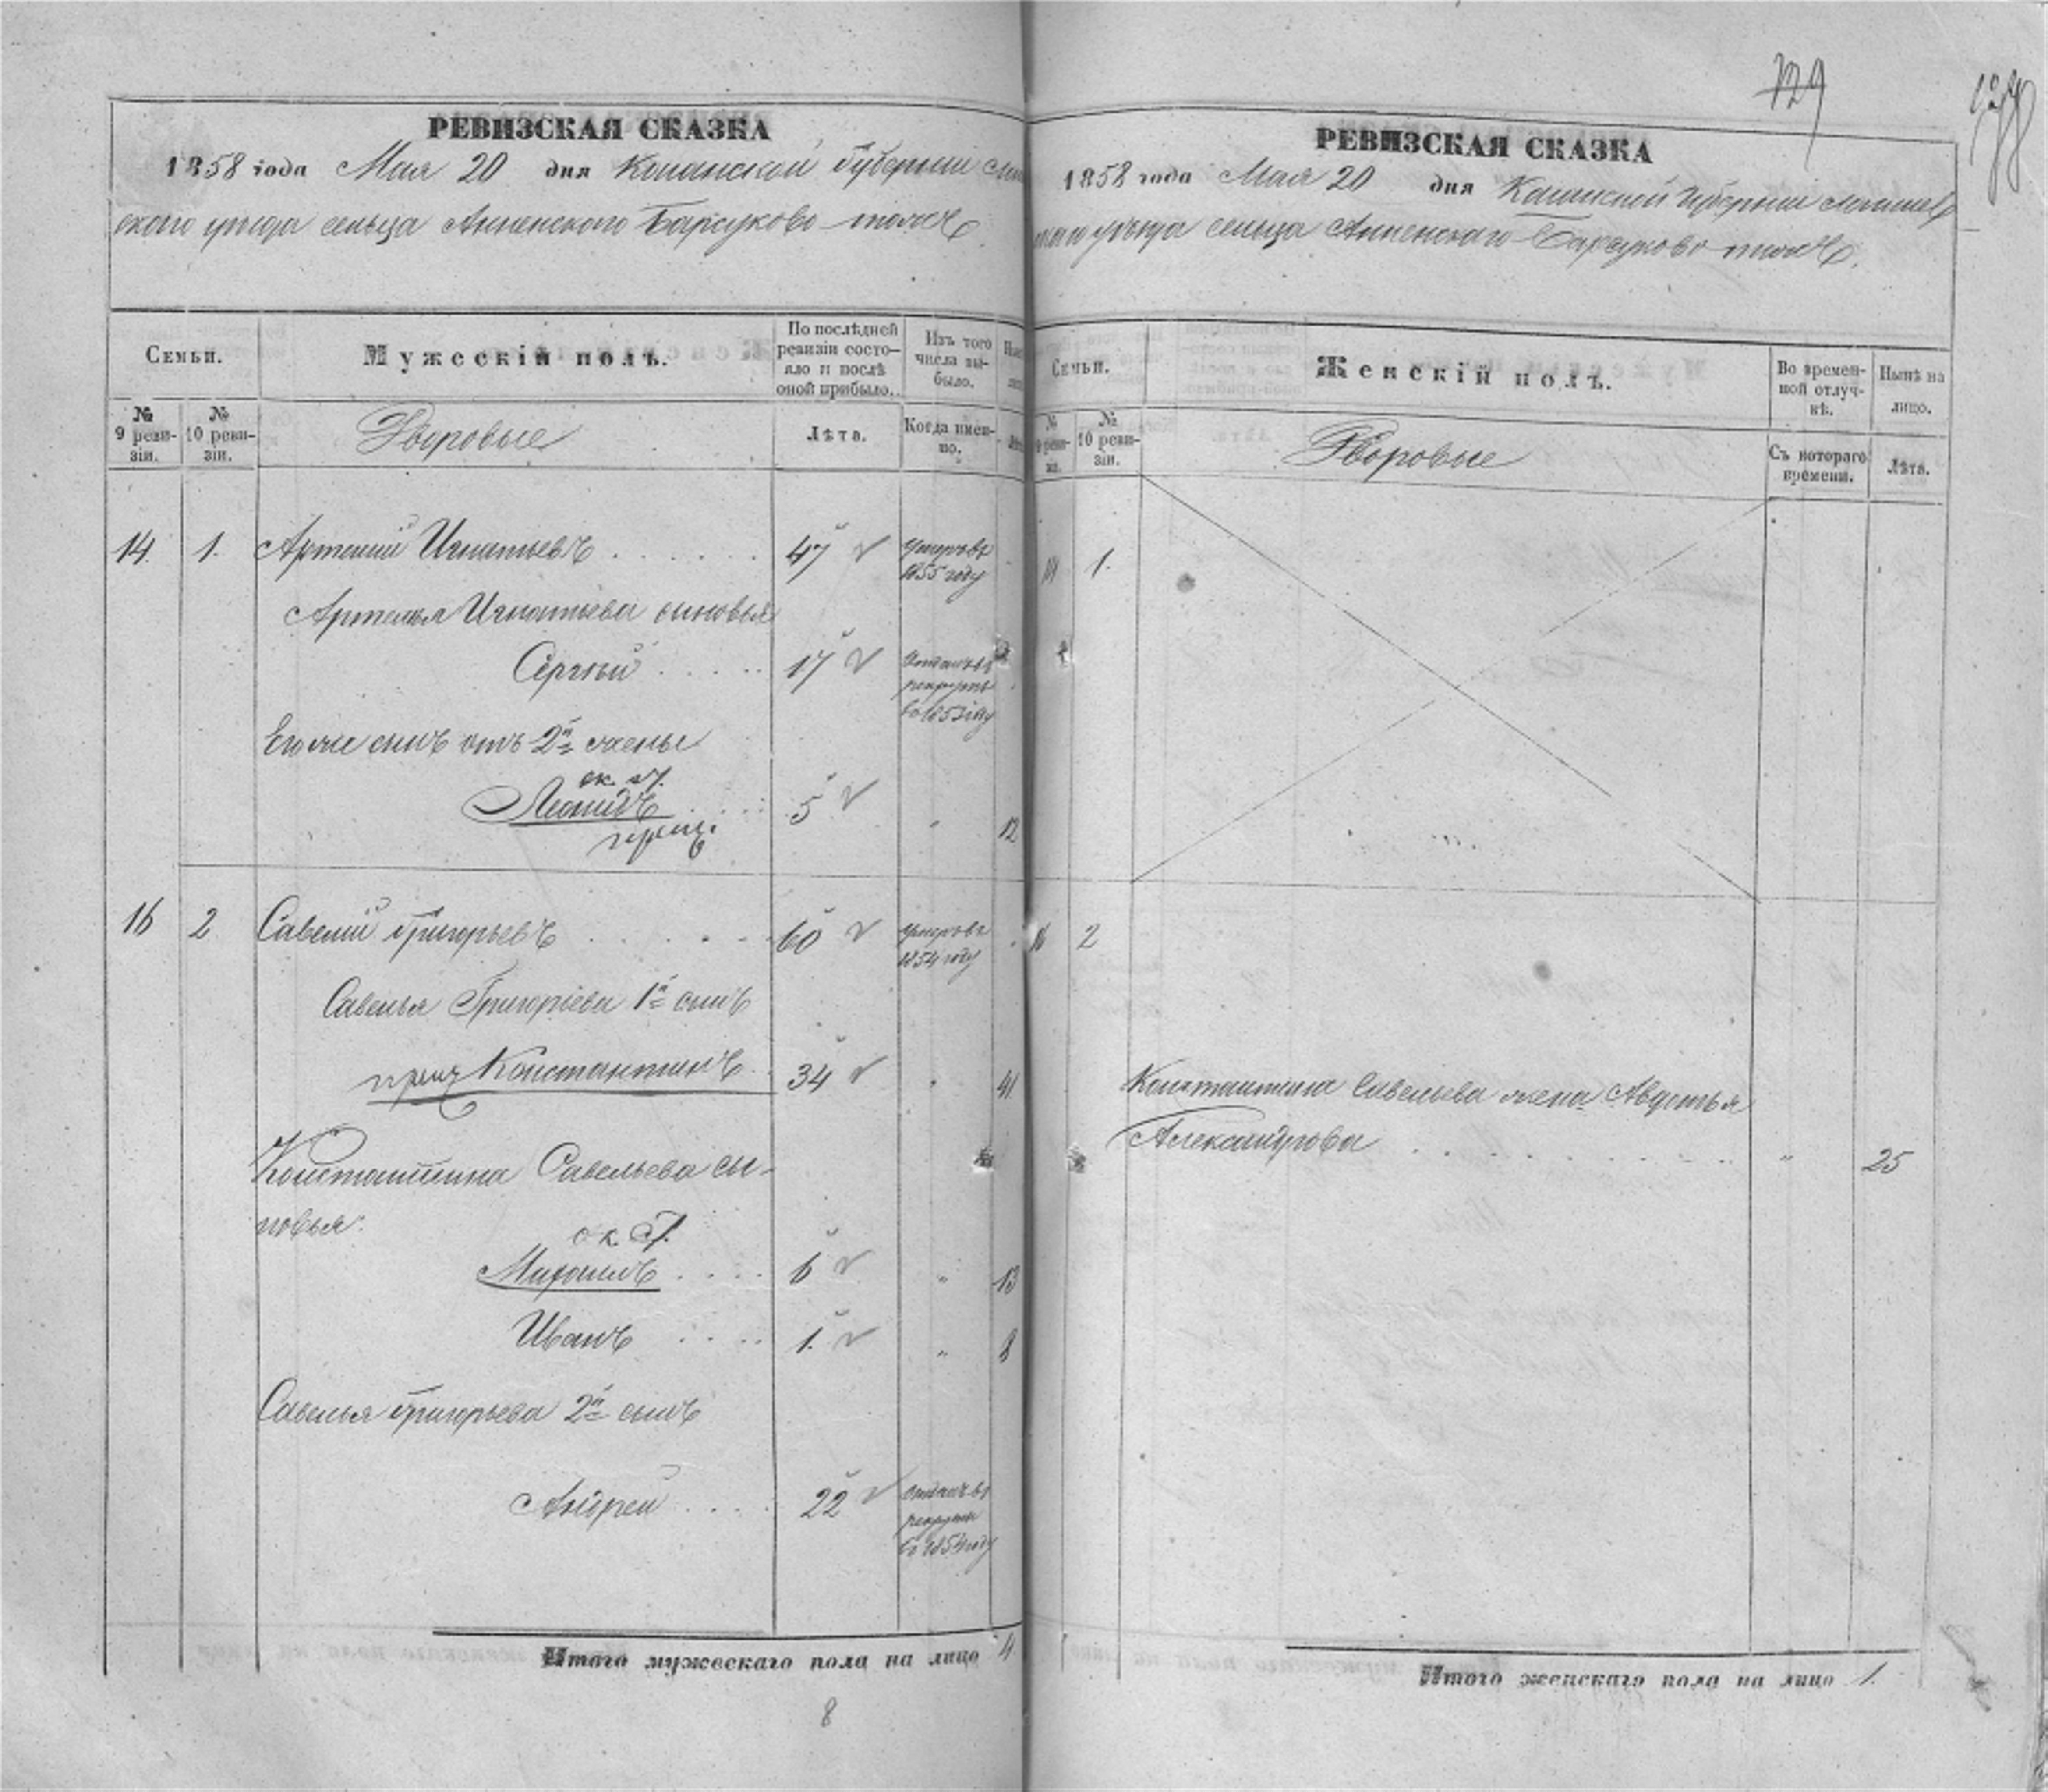 РЕВИЗСКАЯ СКАЗКА
1858 года Мая 20 дня Казанской Губернии
ского уѣзда сельца Анненского Барсуково тожъ
Семьи.
Мужескій полъ.
По послѣдней ревизіи состояло и послѣ оной прибыло.
Изъ того числа выбыло.
№ 9 ревизіи.
№ 10 ревизіи.
Дворовые
Лѣта.
Когда именно.
14. 1. Артемій Игнатьевъ 47 умеръ въ
1855 году
Артемья Игнатьева сыновья
Сергѣй 17 Отданъ въ
рекруты
въ 1853 году
Его же сынъ отъ 2й жены
ок. 27.
Леонидъ 5 " 12
16 2 Савелій Григорьевъ 60 умеръ въ
1854 году
Савелья Григоріева 1й сынъ
Константинъ 34 " 41
Константина Савельева сы-
новья:
ок. 27.
Миронъ 6 " 13
Иванъ 1. " 8
Савелья Григорьева 2й сынъ
Андрей 22 Отданъ въ
рекруты
въ 1854 году
Итого мужескаго пола на лицо 4
8
129
РЕВИЗСКАЯ СКАЗКА
1858 года Мая 20 дня Казанской Губерніи
уѣзда сельца Анненскаго Барсуково тожъ.
Семьи.
Женскій полъ.
Во временной отлучкѣ.
Нынѣ на лицо.
№ 9 ревизіи.
№ 10 ревизіи.
Дворовые
Съ котораго времени.
Лѣта.
14 1.
16 2
Константина Савельева жена Авдотья
Александрова " 25
Итого женскаго пола на лицо 1.